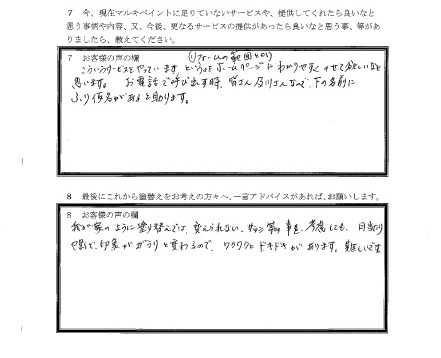 7 今、現在マルキペイントに足りていないサービスや、提供してくれたら良いなと
思う事柄や内容、又、今後、更なるサービスの提供があったら良いなと思う事、等があ
りましたら、教えてください。
7 お客様の声の欄
(リフォームの範囲とか)
こういうサービスをやっています というのを ホームページに わかりやすく のせて欲しいなと
思います。 お電話で呼び出す時、皆さん 及川さんなので、下の名前に
ふり仮名があると助ります。
8 最後にこれから塗替えをお考えの方々へ、一言アドバイスがあれば、お願いします。
8 お客様の声の欄
我が家のように塗り替えでは、変えられない、サッシ等の事を、考慮しても、日当たり
や影で、印象がガラリと変わるので、ワクワクに ドキドキがあります。難しいです